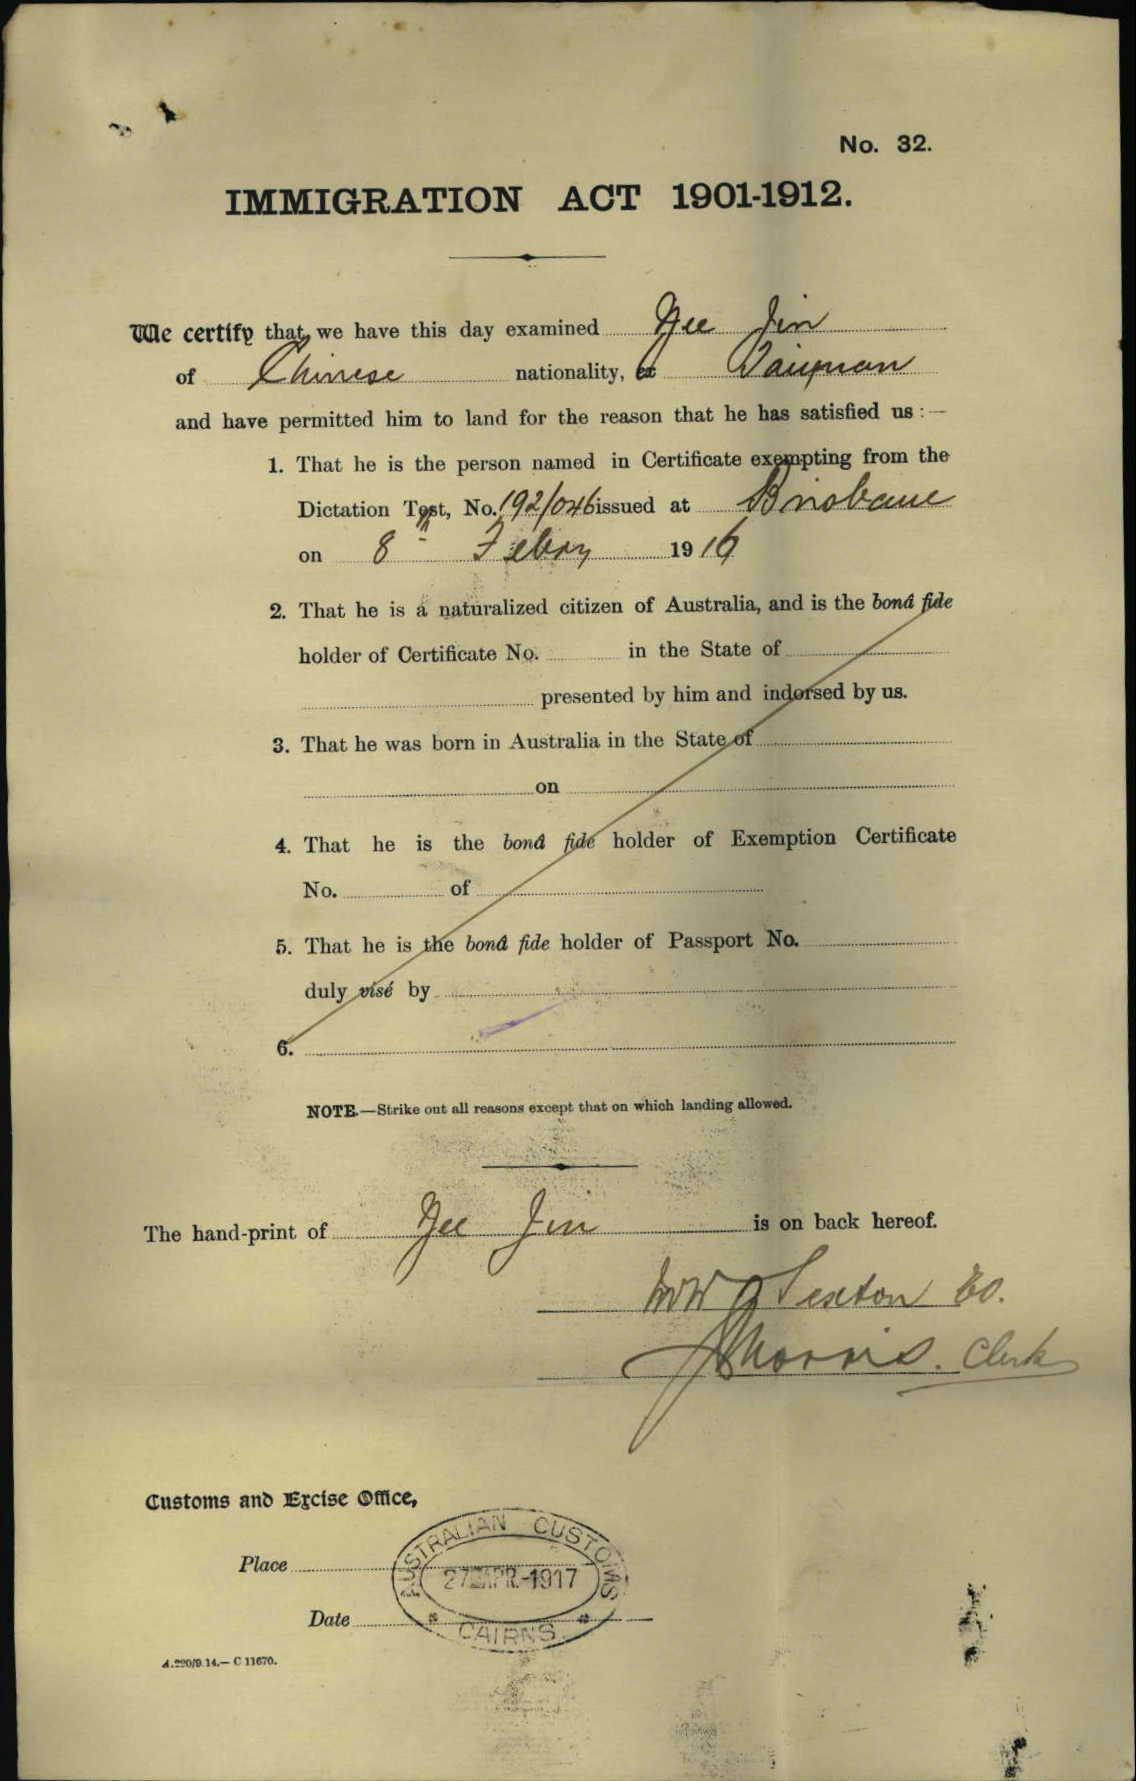 No. 32.
IMMIGRATION ACT 1901-1912.
We certify that we have this day examined Yee Jin
of Chinese nationality, ex Taiyuan
and have permitted him to land for the reason that he has satisfied us :—
1. That he is the person named in Certificate exempting from the
Dictation Test, No. 192/046 issued at Brisbane
on 8th Febry 1916
2. That he is a naturalized citizen of Australia, and is the bonâ fide
holder of Certificate No. in the State of
presented by him and indorsed by us.
3. That he was born in Australia in the State of
on
4. That he is the bonâ fide holder of Exemption Certificate
No. of
5. That he is the bonâ fide holder of Passport No.
duly visé by
6.
NOTE.—Strike out all reasons except that on which landing allowed.
The hand-print of Yee Jin is on back hereof.
Sexton EO.
Morris. Clerk
Customs and Excise Office,
Place
AUSTRALIAN CUSTOMS
27 APR. 1917
Date
CAIRNS
A.220/9.14.— C 11670.